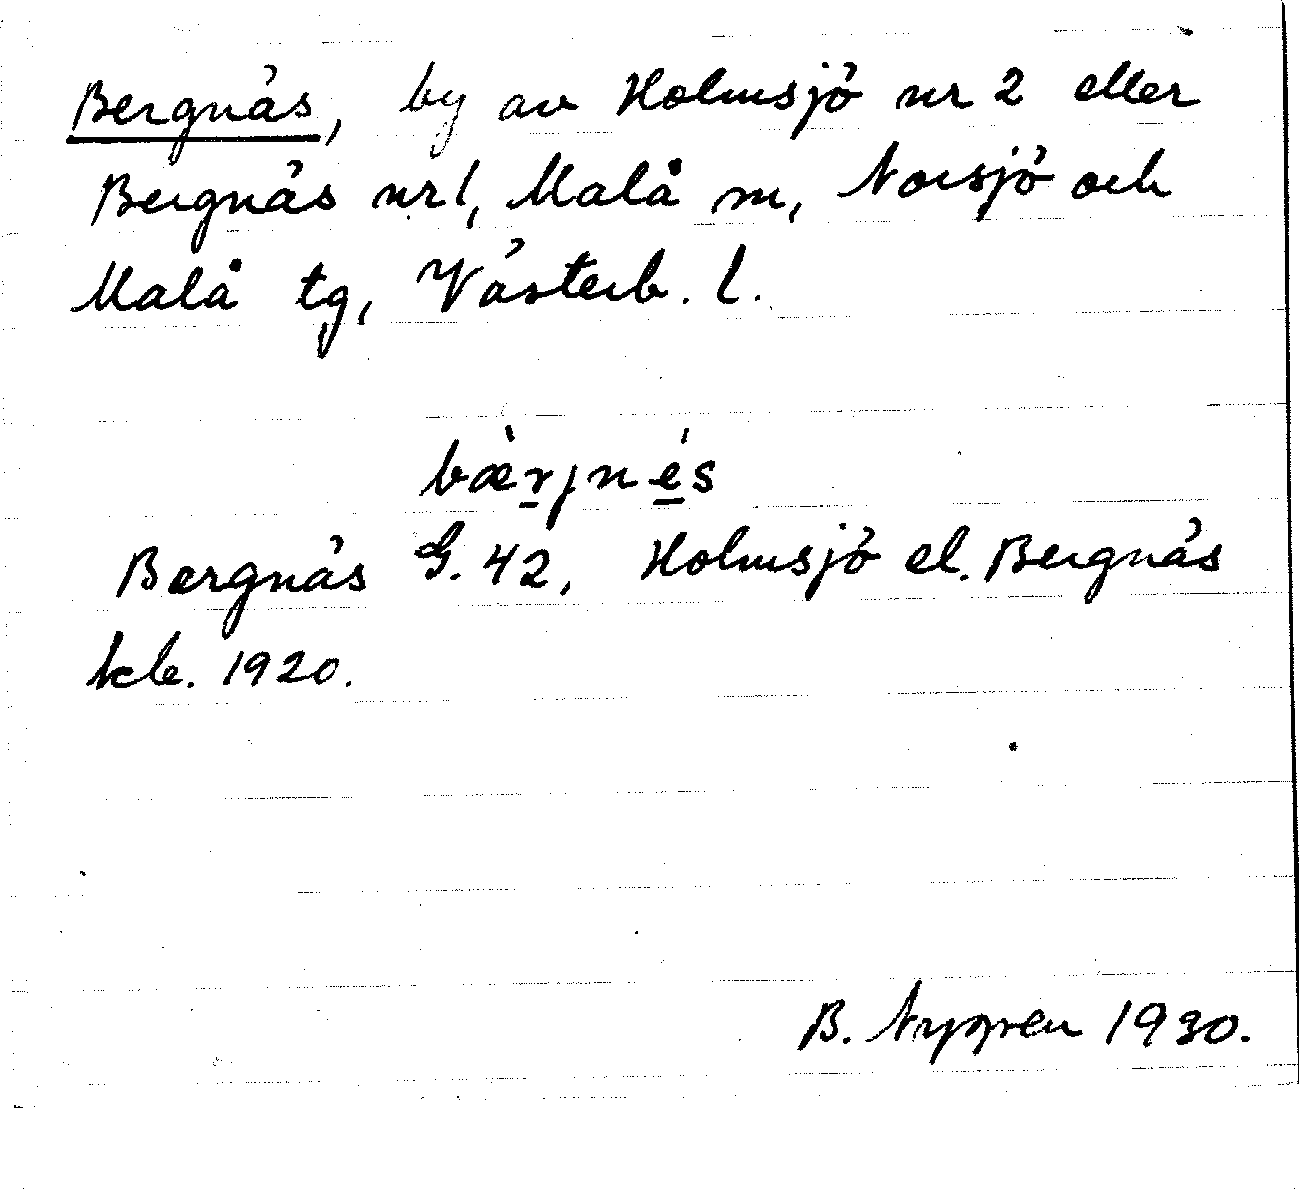 Bergnäs, by av Holmsjö nr 2 eller
Bergnäs nr 1, Malå sn, Norsjö och
Malå tg, Västerb. l.
bæ̀rjnés
Bergnäs G. 42, Holmsjö el. Bergnäs
kb. 1920.
B. Nygren 1930.